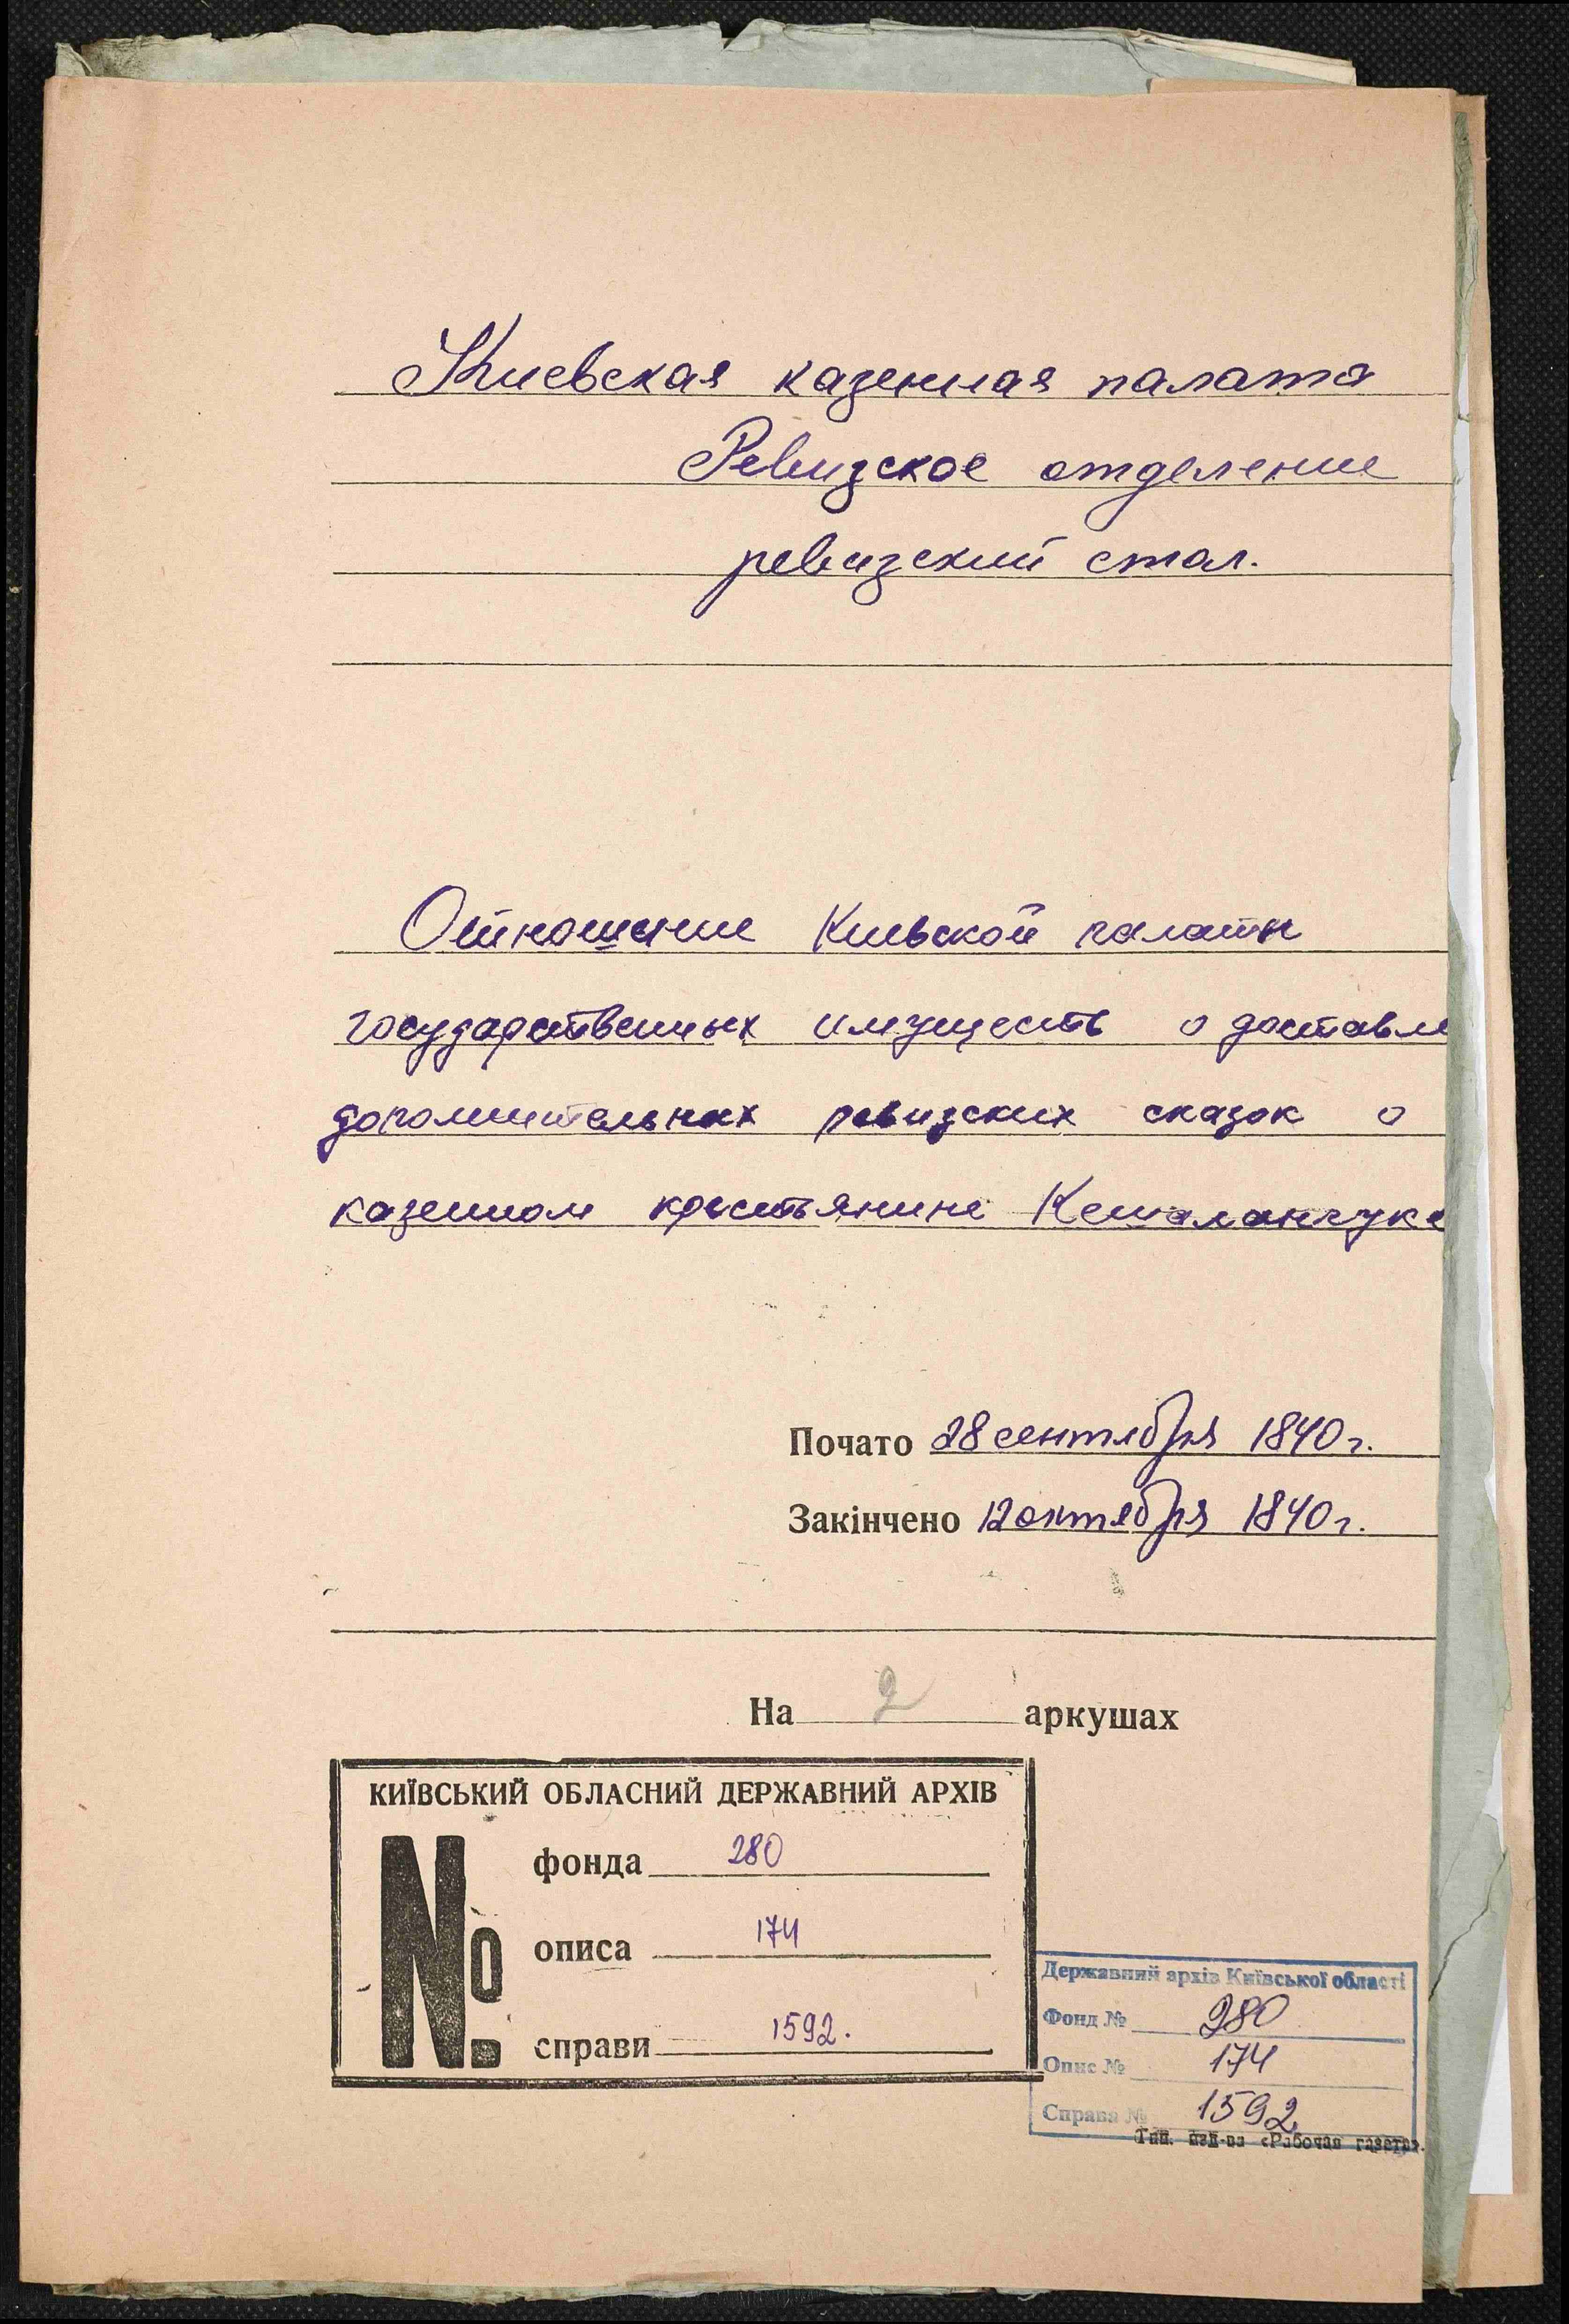 Киевская казенная палата
Ревизское отделение
ревизский стол.
Отношение Киевской палаты
государственных имуществ о доставле
дополнительных ревизских сказок о
казенном крестьянине
Почато 28 сентября 1840 г.
Закінчено 12 октября 1840 г.
На 2 аркушах
КИЇВСЬКИЙ ОБЛАСНИЙ ДЕРЖАВНИЙ АРХІВ
№
фонда 280
описа 174
справи 1592.
Державний архів Київської області
Фонд № 280
Опис № 174
Справа № 1592
Тип. изд-ва «Рабочая газета».